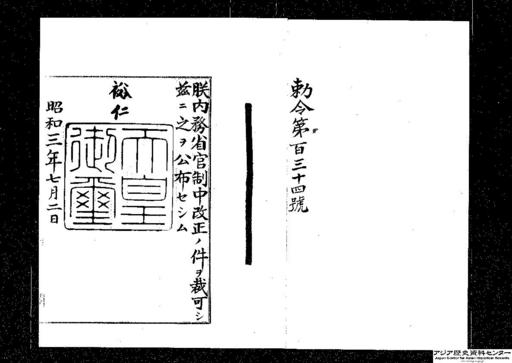 勅令第百三十四號
朕内務省官制中改正ノ件ヲ裁可シ
玆ニ之ヲ公布セシム
裕仁
天皇
御璽
昭和三年七月二日
アジア歴史資料センター
Japan Center for Asian Historical Records